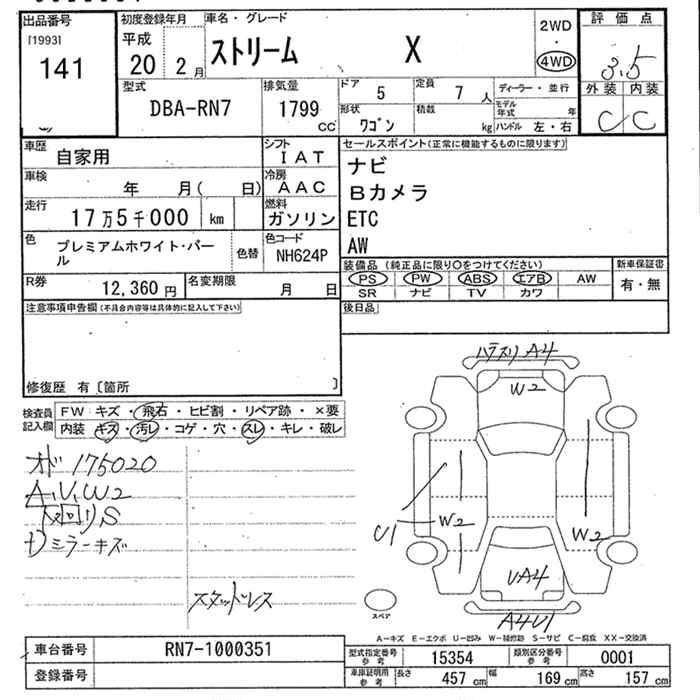 出品番号
[1993]
141
初度登録年月
平成
20 2月
車名・グレード
ストリーム X
2WD
・
4WD
評価点
3.5
外装 内装
C C
型式
DBA-RN7
排気量
1799
CC
ドア
5
定員
7 人
形状
ワゴン
積載
kg
ディーラー・並行
モデル
年式
年
ハンドル 左・右
車歴
自家用
シフト
IAT
車検
年 月( 日)
冷房
AAC
走行
17万5千000 km
燃料
ガソリン
色
プレミアムホワイト・パー
ル
色替
色コード
NH624P
R券
12,360 円
名変期限
月 日
セールスポイント(正常に機能するものに限ります)
ナビ
Bカメラ
ETC
AW
装備品(純正品に限り○をつけてください)
PS PW ABS エアB AW
SR ナビ TV カワ
新車保証書
有・無
後日品
注意事項申告欄(不具合内容等は具体的に記入して下さい)
修復歴 有〔箇所 〕
検査員
記入欄
FW キズ・飛石・ヒビ割・リペア跡・×要
内装 キズ・汚レ・コゲ・穴・スレ・キレ・破レ
オド 175020
A,V,W2
下回リS
ミラーキズ
スタッドレス
A4
W2
U1
W2
W2
UA4
A4U1
スペア
A―キズ E―エクボ U―凹み W―補修跡 S―サビ C―腐食 XX―交換済
車台番号
RN7-1000351
登録番号
型式指定番号
参考
15354
類別区分番号
参考
0001
車庫証明用
参考
長さ
457 cm
幅
169 cm
高さ
157 cm